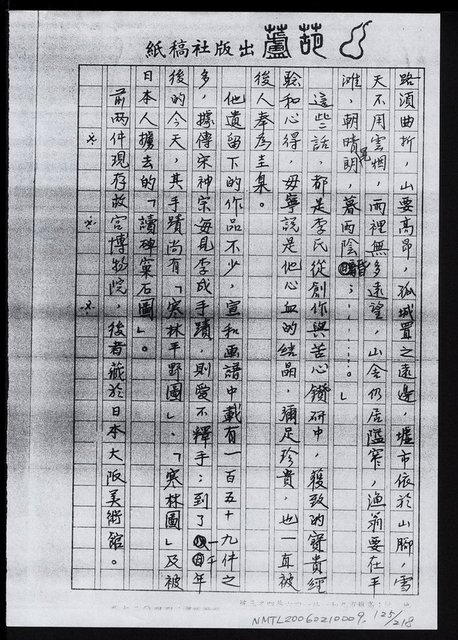 紙稿社版出蘆葫
路須曲折，山要高昂，孤城置之遠邊，墟市依於山腳，雪
天不用雲烟，雨裡無多遠望，山舍仍居隘窄，漁翁要在平
灘，朝晴晃朗，暮雨陰昏；……。」
這些話，都是李氏從創作與苦心鑽研中，獲致的寶貴經
驗和心得，毋寧說是他心血的結晶，彌足珍貴，也一直被
後人奉為圭臬。
他遺留下的作品不少，宣和画譜中載有一百五十九件之
多，據傳宋神宗每見李成手蹟，則愛不釋手；到了一千年
後的今天，其手蹟尚有「寒林平野圖」、「寒林圖」及被
日本人擄去的「讀碑窠石圖」。
前兩件現存故宮博物院，後者藏於日本大阪美術館。
NMTL20060210009. 125/218